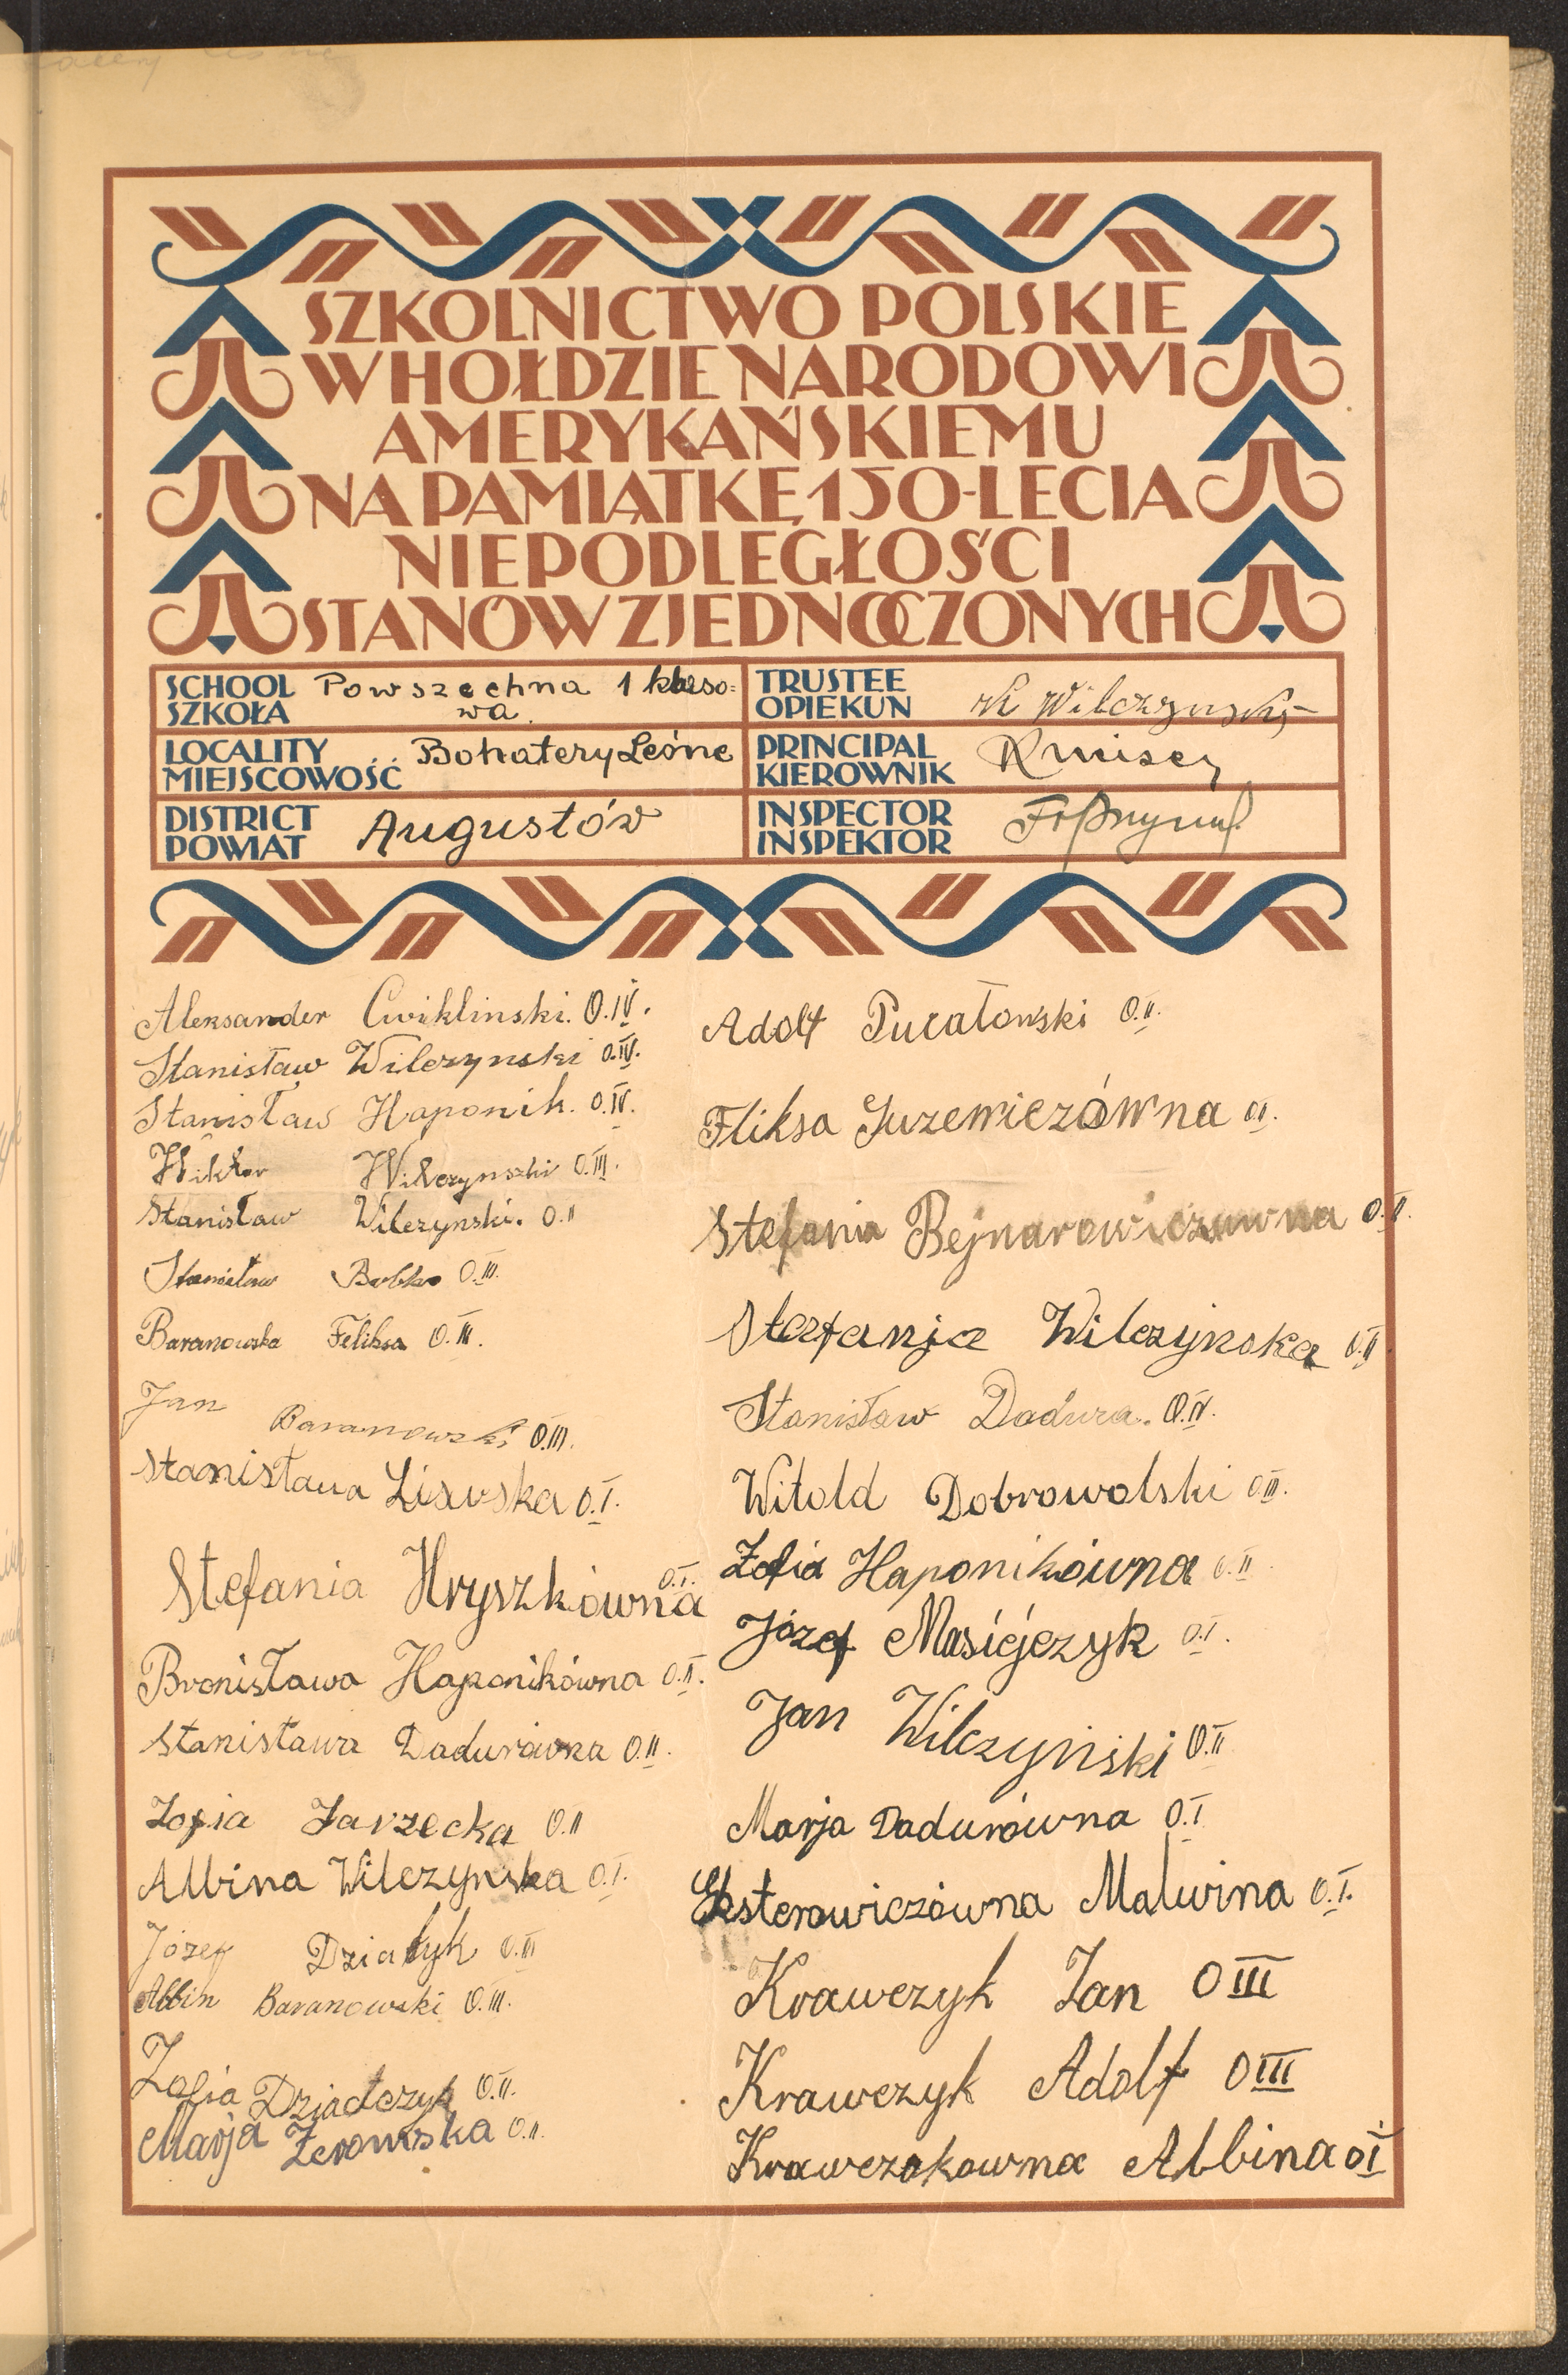 SZKOLNICTWO POLSKIE
W HOŁDZIE NARODOWI
AMERYKAŃSKIEMU
NA PAMIĄTKĘ 150-LECIA
NIEPODLEGŁOŚCI
STANÓW ZJEDNOCZONYCH
SCHOOL
SZKOŁA
Powszechna 1 klaso=
wa.
TRUSTEE
OPIEKUN
Wilczynski
LOCALITY
MIEJSCOWOŚĆ
Bohatery Leśne
PRINCIPAL
KIEROWNIK
DISTRICT
POWIAT
Augustów
INSPECTOR
INSPEKTOR
Aleksander Cwiklinski. O.IV.
Stanisław Wilczynski O.IV.
Stanisław Haponik. O.IV.
Wiktor Wilczynszki O.III.
Stanisław Wilczynski. O.II
Stanisław Bobko O.III.
Baranowska Feliksa O.III.
Jan Baranowski O.III.
Stanisława Lisowska O.I.
Stefania Hryszkówna O.I.
Bronisława Haponikówna O.II.
Stanisława Dadurówna O.II.
Zofia Jarzecka O.II
Albina Wilczynska O.I.
Józef Dziatyk O.III
Albin Baranowski O.III.
Zofia Dziadczyk O.II.
Marja Żeromska O.II.
Adolf Pucałowski O.II.
Fliksa Juzewiczówna O.I.
Stefania Bejnarowiczuwna O.II.
Stefanja Wilczyńska O.II.
Stanisław Dadura. O.IV.
Witold Dobrowolski O.III.
Zofia Haponikówna O.II.
Józef Masiejczyk O.I.
Jan Wilczyński O.II
Marja Dadurówna O.I.
Eksterowiczówna Malwina O.I.
Krawczyk Jan O III
Krawczyk Adolf O III
Krawczakowna Albina O I